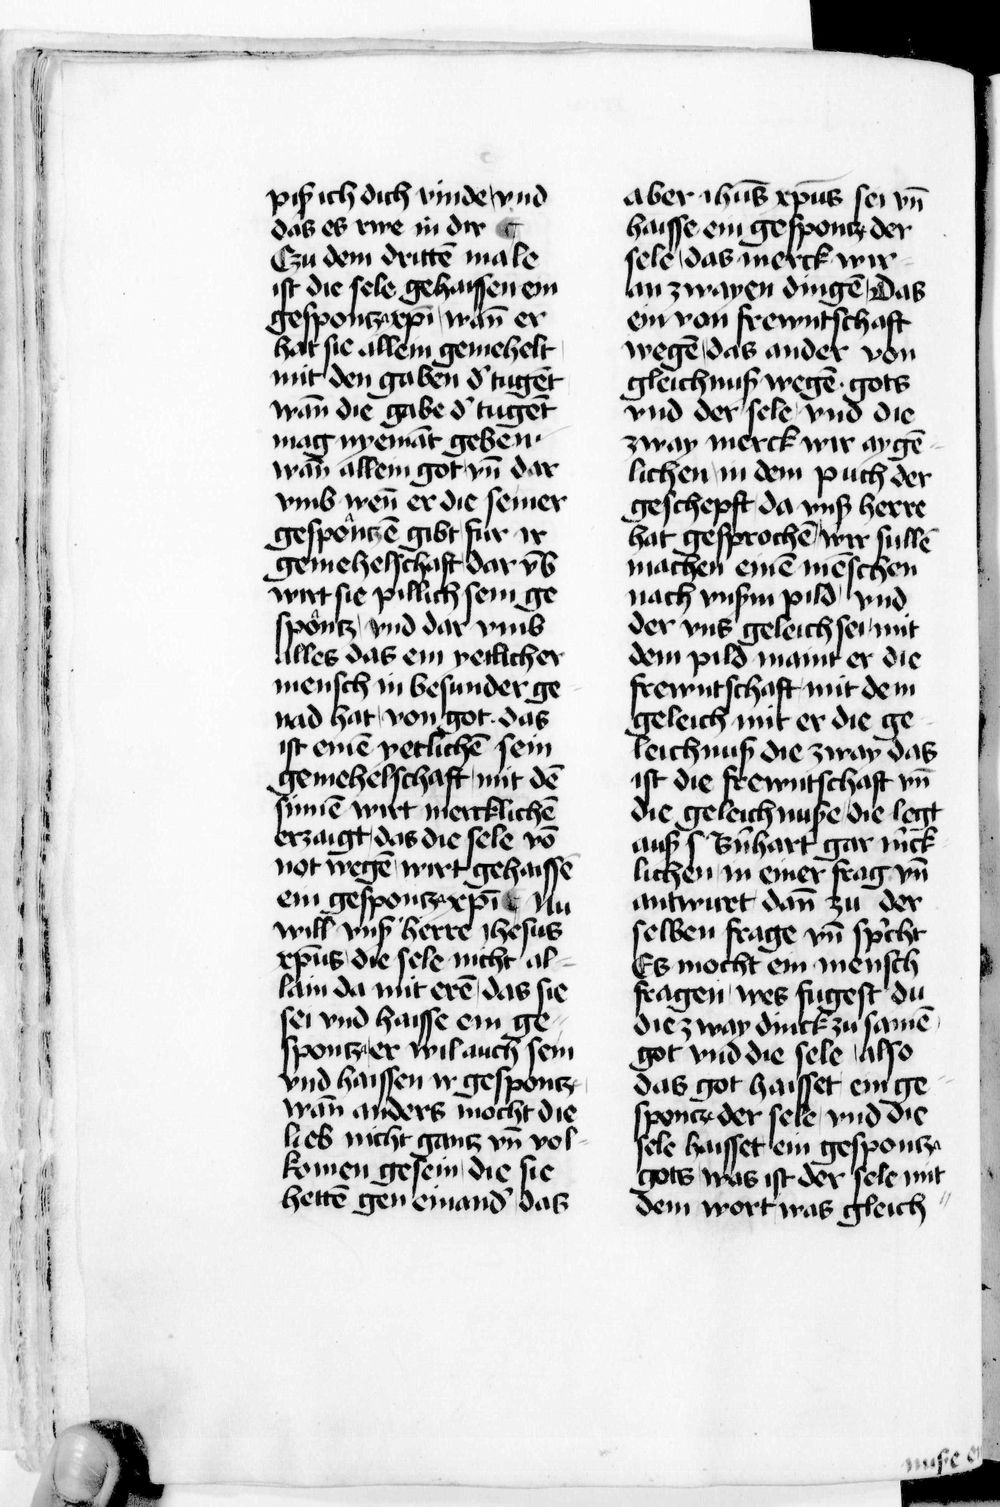 piß ich dich vinde vnd
das es rwe in dir
Czu dem drittē male
ist die sele gehaissen ein
gespontz xp̄i wañ er
hat sie allein gemehelt
mit den gaben d' tugēt
wañ die gabe d' tugēt
mag nyemāt geben
wañ allein got vñ dar
vmb weñ er die seiner
gespontzē gibt fur ir
gemehelschaft dar v̄b
wirt sie pillich sein ge
spontz vnd dar vmb
alles das ein yetlicher
mensch in besunder ge-
nad hat von got das
ist einē yetlichē sein
gemehelschaft mit dē
sinnē wirt mercklichē
erzaigt das die sele vō
not wegē wirt gehaissē
ein gespontz xp̄i Nu
will vnß herre ihesus
xp̄us die sele nicht al-
lain da mit erē das sie
sei vnd haisse ein ge-
spontz er wil auch sein
vnd haissen ir gespontz
wañ anders mocht die
lieb nicht gantz vñ vol-
komen gesein die sie
hettē gen einand' das
aber ihūs xp̄us sei vñ
haisse ein gespontz der
sele das merck wir
an zwayen dingē Das
ein von frewntschaft
wegē das ander von
gleichnuß wegē gots
vnd der sele vnd die
zway merck wir aygē-
lichen in dem puch der
geschepft da vnß herre
hat gesprochē wir sullē
machen einē mēschen
nach vnßm pild vnd
der vns geleich sei mit
dem pild maint er die
frewntschaft mit dem
geleich mit er die ge-
leichnuß die zway das
ist die frewntschaft vñ
die geleichnuße die legt
auß s Bn̄hart gar m'ck-
lichen in einer frag vñ
antwurt dañ zu der
selben frage vñ sp'cht
Es mocht ein mensch
fragen wes fugest du
die zway dinck zu samē
got vnd die sele also
das got haisset ein ge-
spontz der sele vnd die
sele haisset ein gespontz
gots was ist der sele mit
dem wort was gleich
nuße